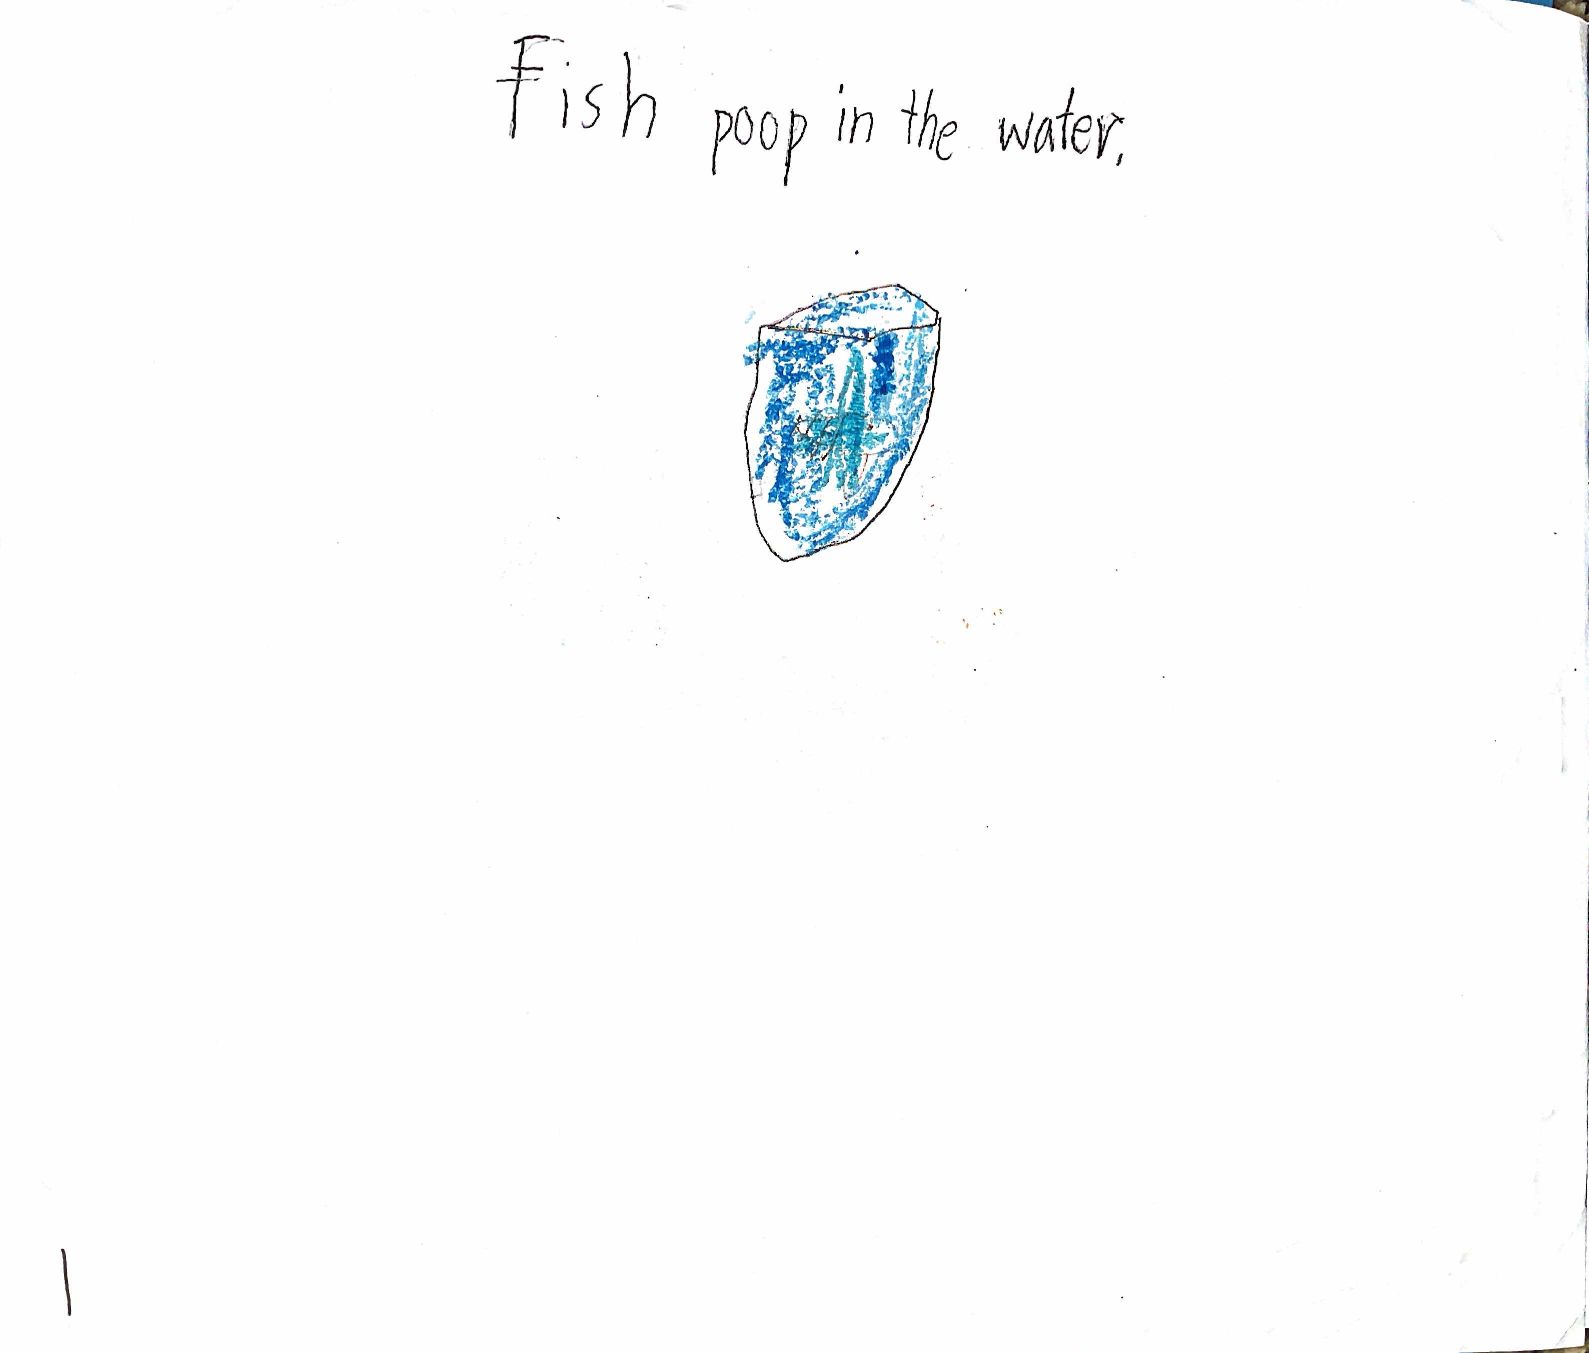 Fish poop in the water.
1